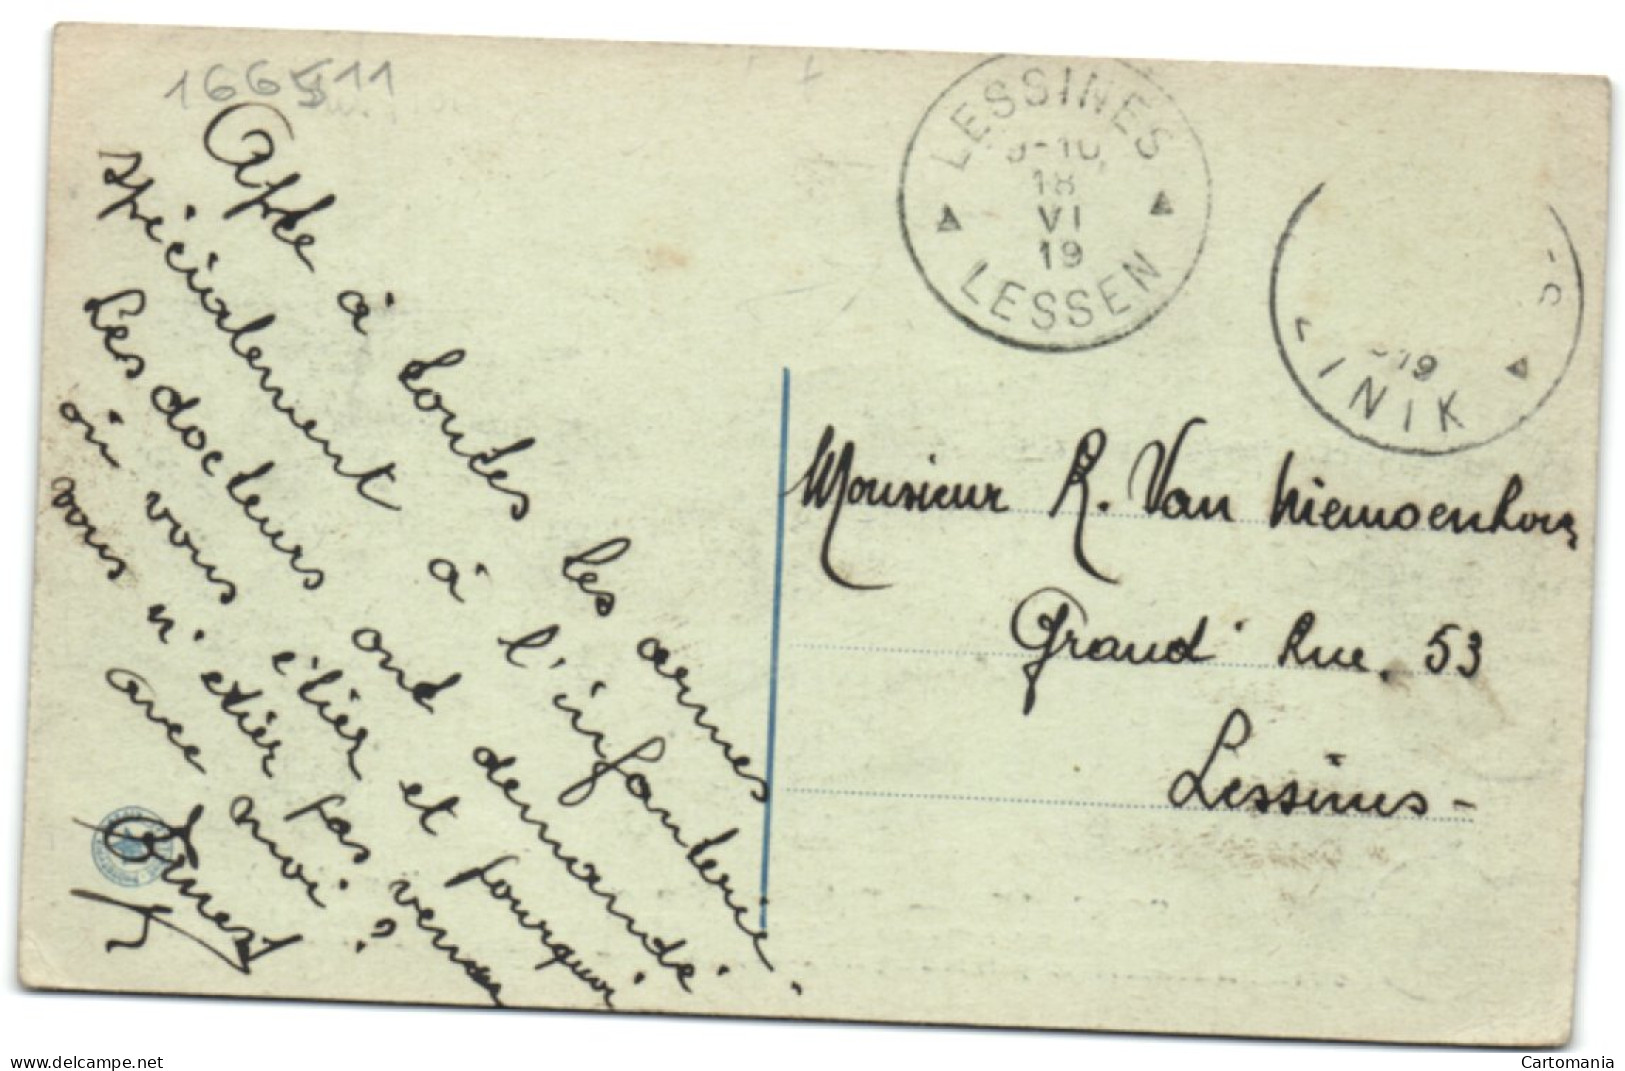 1665511
Apte à toutes les armes
spécialement à l'infanterie.
Les docteurs ont demandé
où vous étier et pourquoi
vous n'etier pas venu
avec moi ?
Ernest
LESSINES
9-10
18
VI
19
LESSEN
19
INIK
Monsieur R. Van
Grand' Rue. 53
Lessines -
delcampe.net
Cartomania